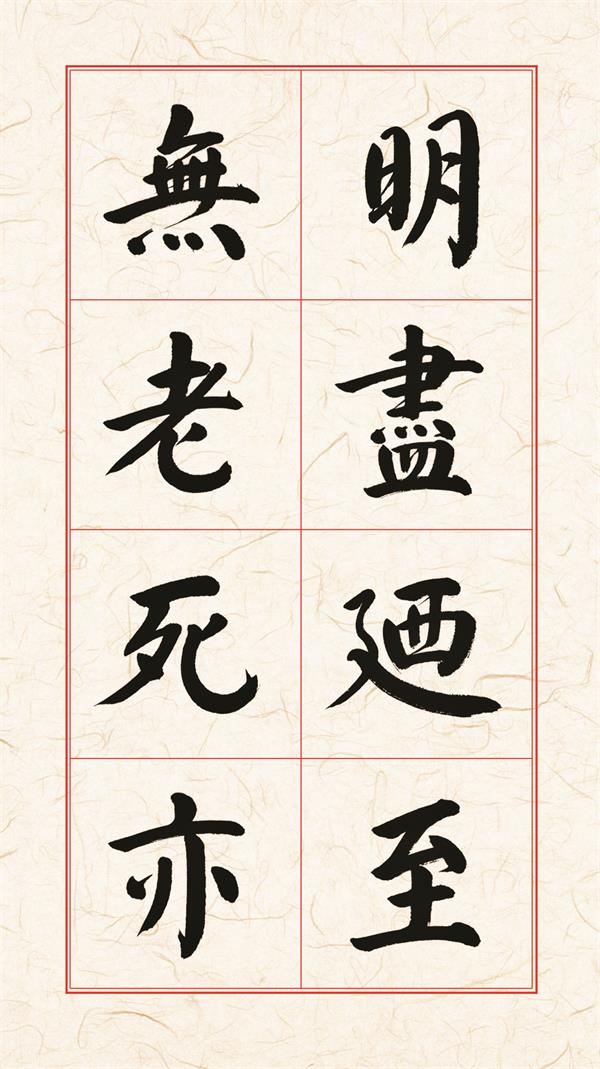 明盡廼至
無老死亦